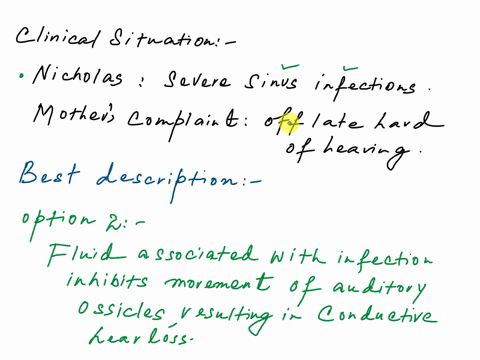 Clinical Situation:-
• Nicholas : Severe Sinus infections.
Mother's Complaint: off late hard
of hearing.
Best description:-
option 2:-
Fluid associated with infection
inhibits movement of auditory
Ossicles, resulting in Conductive
hear loss.